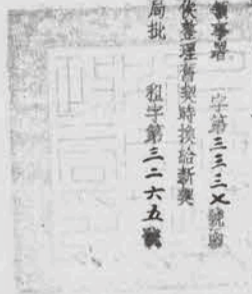 領事署 一字第三三三七號朂
俟整理舊契時換給新契
局批 租字第三二六五號